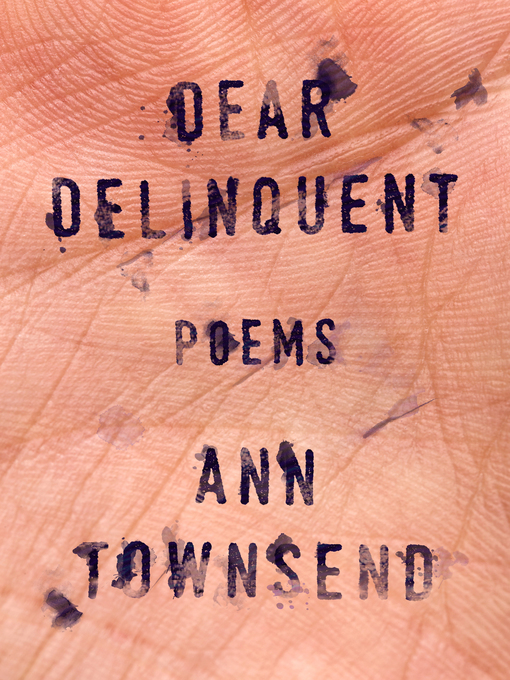 DEAR
DELINQUENT
POEMS
ANN
TOWNSEND